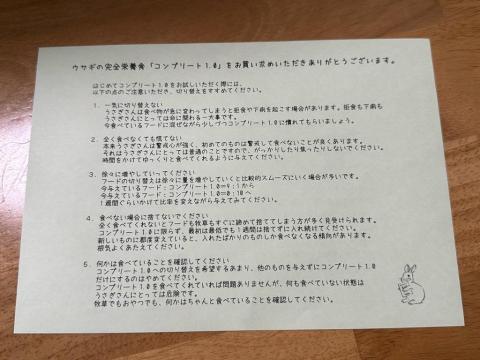 ウサギの完全栄養食「コンプリート1.0」をお買い求めいただきありがとうございます。
はじめてコンプリート1.0をお試しいただく際には、
以下の点のご注意いただき、切り替えをすすめてください。
1. 一気に切り替えない
うさぎさんは食べ物が急に変わってしまうと拒食や下痢を起こす場合があります。拒食も下痢も
うさぎさんにとっては命に関わる一大事です。
今食べているフードに混ぜながら少しづつコンプリート1.0に慣れてもらいましょう。
2. 全く食べなくても慌てない
本来うさぎさんは警戒心が強く、初めてのものは警戒して食べないことが良くあります。
それはうさぎさんにとっては普通のことですので、がっかりしたり焦ったりしないでください。
時間をかけてゆっくりと食べてくれるように与えてください。
3. 徐々に増やしていってください
フードの切り替えは徐々に量を増やしていくと比較的スムーズにいく場合が多いです。
今与えているフード:コンプリート1.0=9:1から
今与えているフード:コンプリート1.0=0:10へ
1週間ぐらいかけて比率を変えながら与えてみてください。
4. 食べない場合に捨てないでください
全く食べてくれないとフードも牧草もすぐに諦めて捨ててしまう方が多く見受けられます。
コンプリート1.0に限らず、最初は最低でも1週間は捨てずに入れ続けてください。
新しいものに都度変えていると、入れたばかりのものしか食べなくなる傾向があります。
根気よくあたえてください。
5. 何かは食べていることを確認してください
コンプリート1.0への切り替えを希望するあまり、他のものを与えずにコンプリート1.0
だけにするのはやめてください。
コンプリート1.0を食べてくれていれば問題ありませんが、何も食べていない状態は
うさぎさんにとっては危険です。
牧草でもおやつでも、何かはちゃんと食べていることを確認してください。